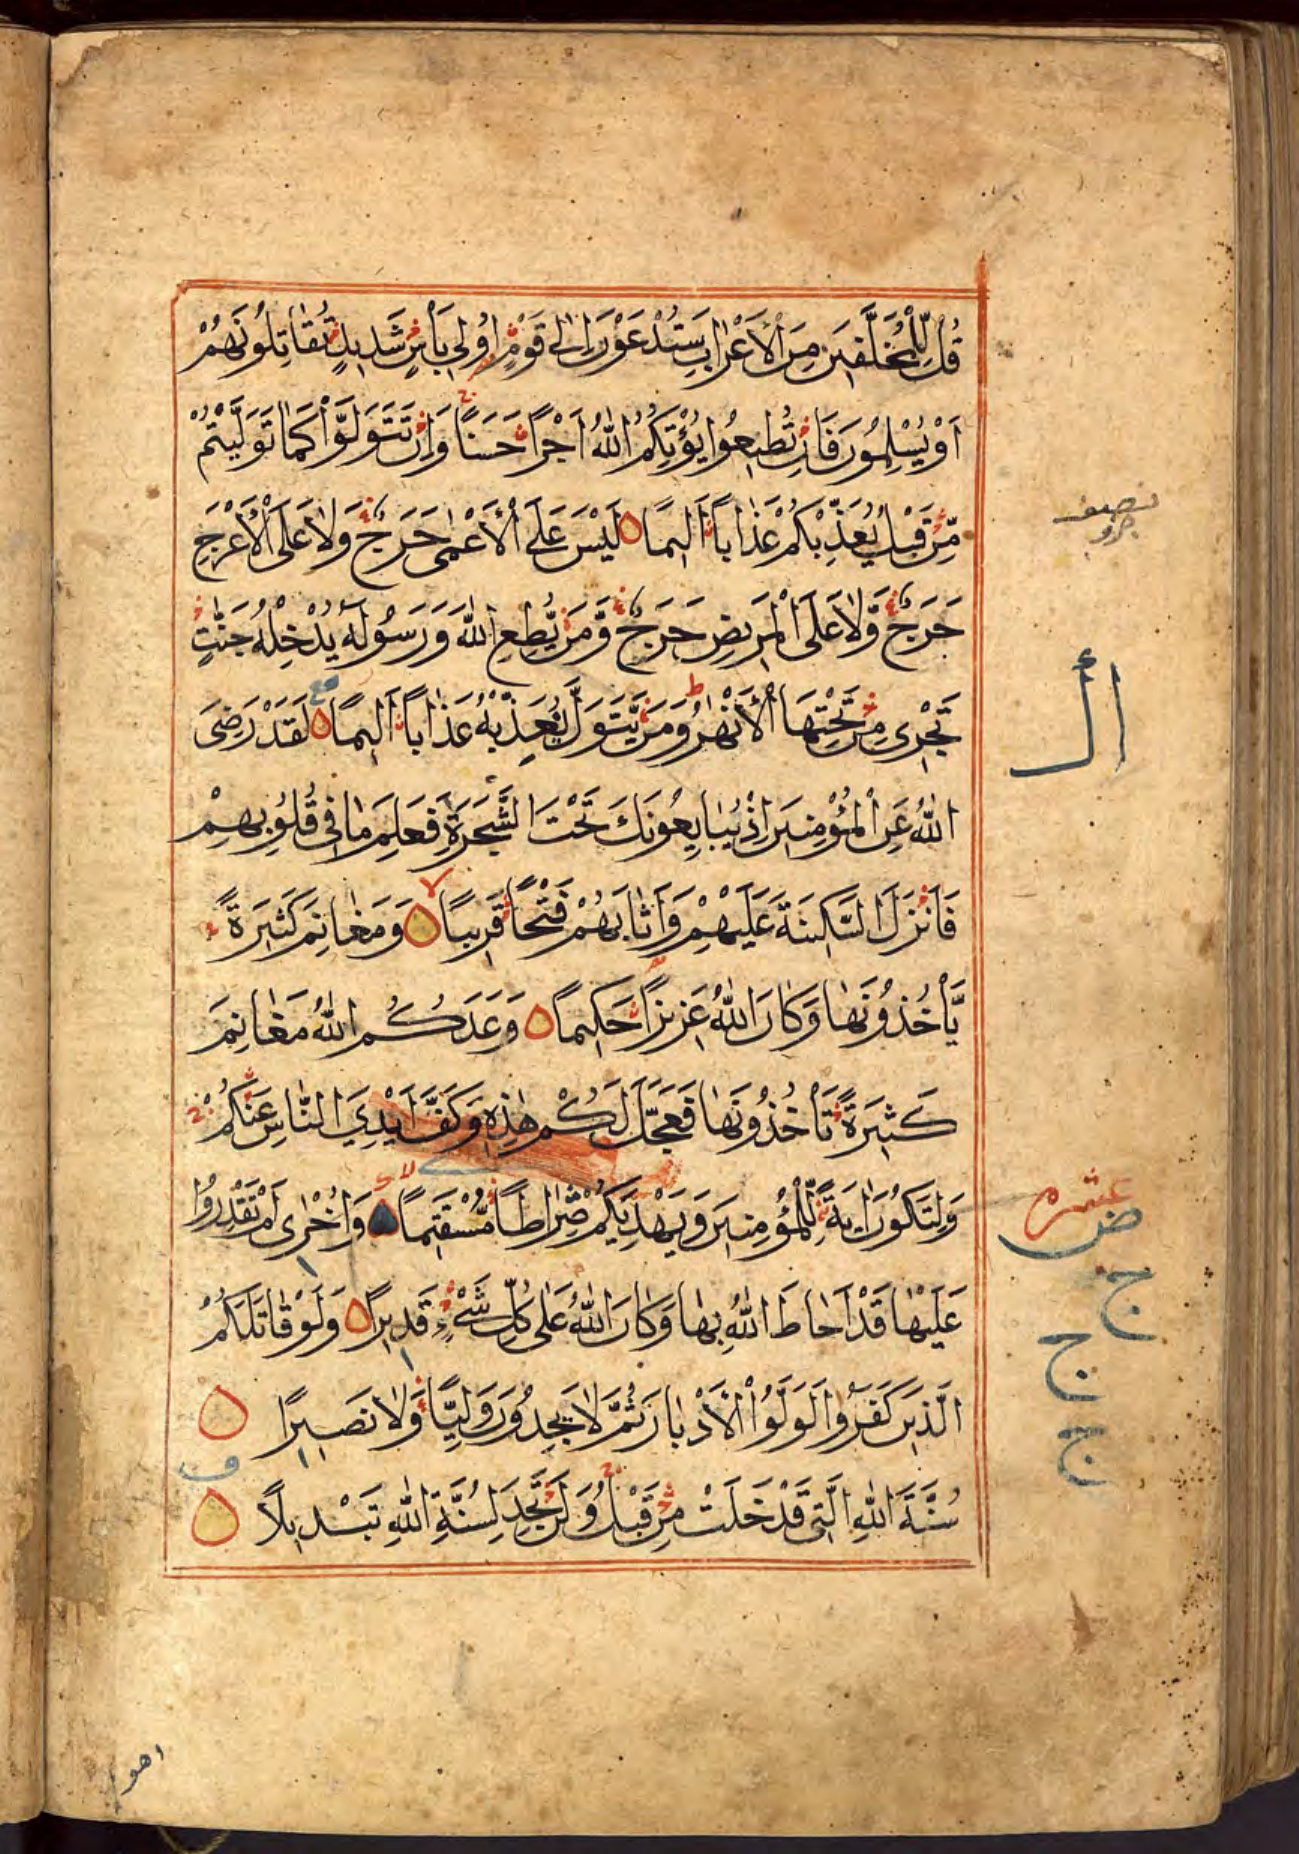 قُلْ لِلْمُخَلَّفِينَ مِنَ الْأَعْرَابِ سَتُدْعَوْنَ إِلَىٰ قَوْمٍ أُولِي بَأْسٍ شَدِيدٍ تُقَاتِلُونَهُمْ
أَوْ يُسْلِمُونَ فَإِنْ تُطِيعُوا يُؤْتِكُمُ اللَّهُ أَجْرًا حَسَنًا وَإِنْ تَتَوَلَّوْا كَمَا تَوَلَّيْتُمْ
مِّنْ قَبْلُ يُعَذِّبْكُمْ عَذَابًا أَلِيمًا لَيْسَ عَلَى الْأَعْمَىٰ حَرَجٌ وَلَا عَلَى الْأَعْرَجِ
حَرَجٌ وَّلَا عَلَى الْمَرِيضِ حَرَجٌ وَّمَنْ يُّطِعِ اللَّهَ وَرَسُولَهُ يُدْخِلْهُ جَنَّٰتٍ
تَجْرِي مِنْ تَحْتِهَا الْأَنْهٰرُ وَمَنْ يَّتَوَلَّ يُعَذِّبْهُ عَذَابًا أَلِيمًا لَقَدْ رَضِيَ
اللَّهُ عَنِ الْمُؤْمِنِينَ إِذْ يُبَايِعُونَكَ تَحْتَ الشَّجَرَةِ فَعَلِمَ مَا فِي قُلُوبِهِمْ
فَأَنْزَلَ السَّكِينَةَ عَلَيْهِمْ وَأَثَابَهُمْ فَتْحًا قَرِيبًا وَمَغَانِمَ كَثِيرَةً
يَّأْخُذُونَهَا وَكَانَ اللَّهُ عَزِيزًا حَكِيمًا وَعَدَكُمُ اللَّهُ مَغَانِمَ
كَثِيرَةً تَأْخُذُونَهَا فَعَجَّلَ لَكُمْ هٰذِهِ وَكَفَّ أَيْدِيَ النَّاسِ عَنْكُمْ
وَلِتَكُونَ اٰيَةً لِّلْمُؤْمِنِينَ وَيَهْدِيَكُمْ صِرَاطًا مُّسْتَقِيمًا وَأُخْرٰى لَمْ تَقْدِرُوا
عَلَيْهَا قَدْ أَحَاطَ اللَّهُ بِهَا وَكَانَ اللَّهُ عَلَىٰ كُلِّ شَيْءٍ قَدِيرًا وَلَوْ قَاتَلَكُمُ
الَّذِينَ كَفَرُوا لَوَلَّوُا الْأَدْبَارَ ثُمَّ لَا يَجِدُونَ وَلِيًّا وَّلَا نَصِيرًا
سُنَّةَ اللَّهِ الَّتِي قَدْ خَلَتْ مِنْ قَبْلُ وَلَنْ تَجِدَ لِسُنَّةِ اللَّهِ تَبْدِيلًا
عشره
ض
ج
ج
ج